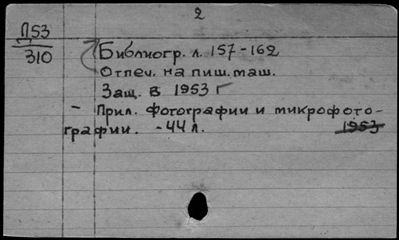 2
П53
310
Библиогр. л. 157-162
Отпеч. на пиш. маш.
Защ. в 1953 г
- Прил. фотографии и микрофото-
графии. - 44 л. 1953